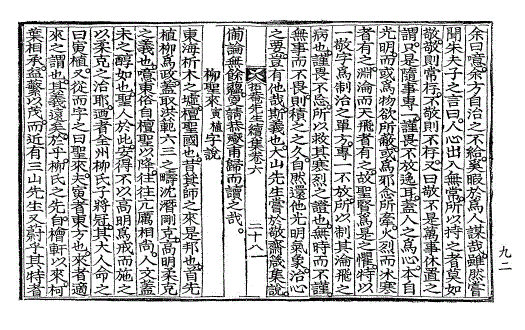 余曰噫余方自治之不給奚暇於爲人謀哉雖然嘗
聞朱夫子之言曰人心出入無常所以持之者莫如
敬敬則常存不敬則不存又曰敬不是萬事休置之
謂只是隨事專一謹畏不放逸耳蓋人之爲心本自
光明而或爲物欲所蔽或爲邪所牽火烈而水寒
者有之淵淪而天飛者有之故聖賢爲是之懼特以
一敬字爲制治之單方專一不放所以制其淪飛之
病也謹畏不忘所以救其寒烈之證也無時而不謹
無事而不畏則積之之久自然還他光明氣象治心
之要豈有他哉斯義也大山先生嘗於敬齋箴集說
備論無餘蘊更請恭甫歸而讀之哉
先生續集卷六 二十八
柳聖來寅植字說
東海析木之墟檀聖國也昔箕師之來是邦也首先
植柳爲政蓋取洪範六三之疇沈潛剛克高明柔克
之義也噫東俗自檀聖以降往往亢厲相尙人文蓋
未之醇如也聖人於此安得不以高明爲戒而施之
以柔克之治耶道者全州柳人子將冠其大人命之
曰寅植又從而字之曰聖來夫寅者東方也來者適
來之謂也其義遠矣於乎柳氏之先自檜軒以來柯
葉相承益繁以茂而近有三山先生又蔚乎其特者
九二